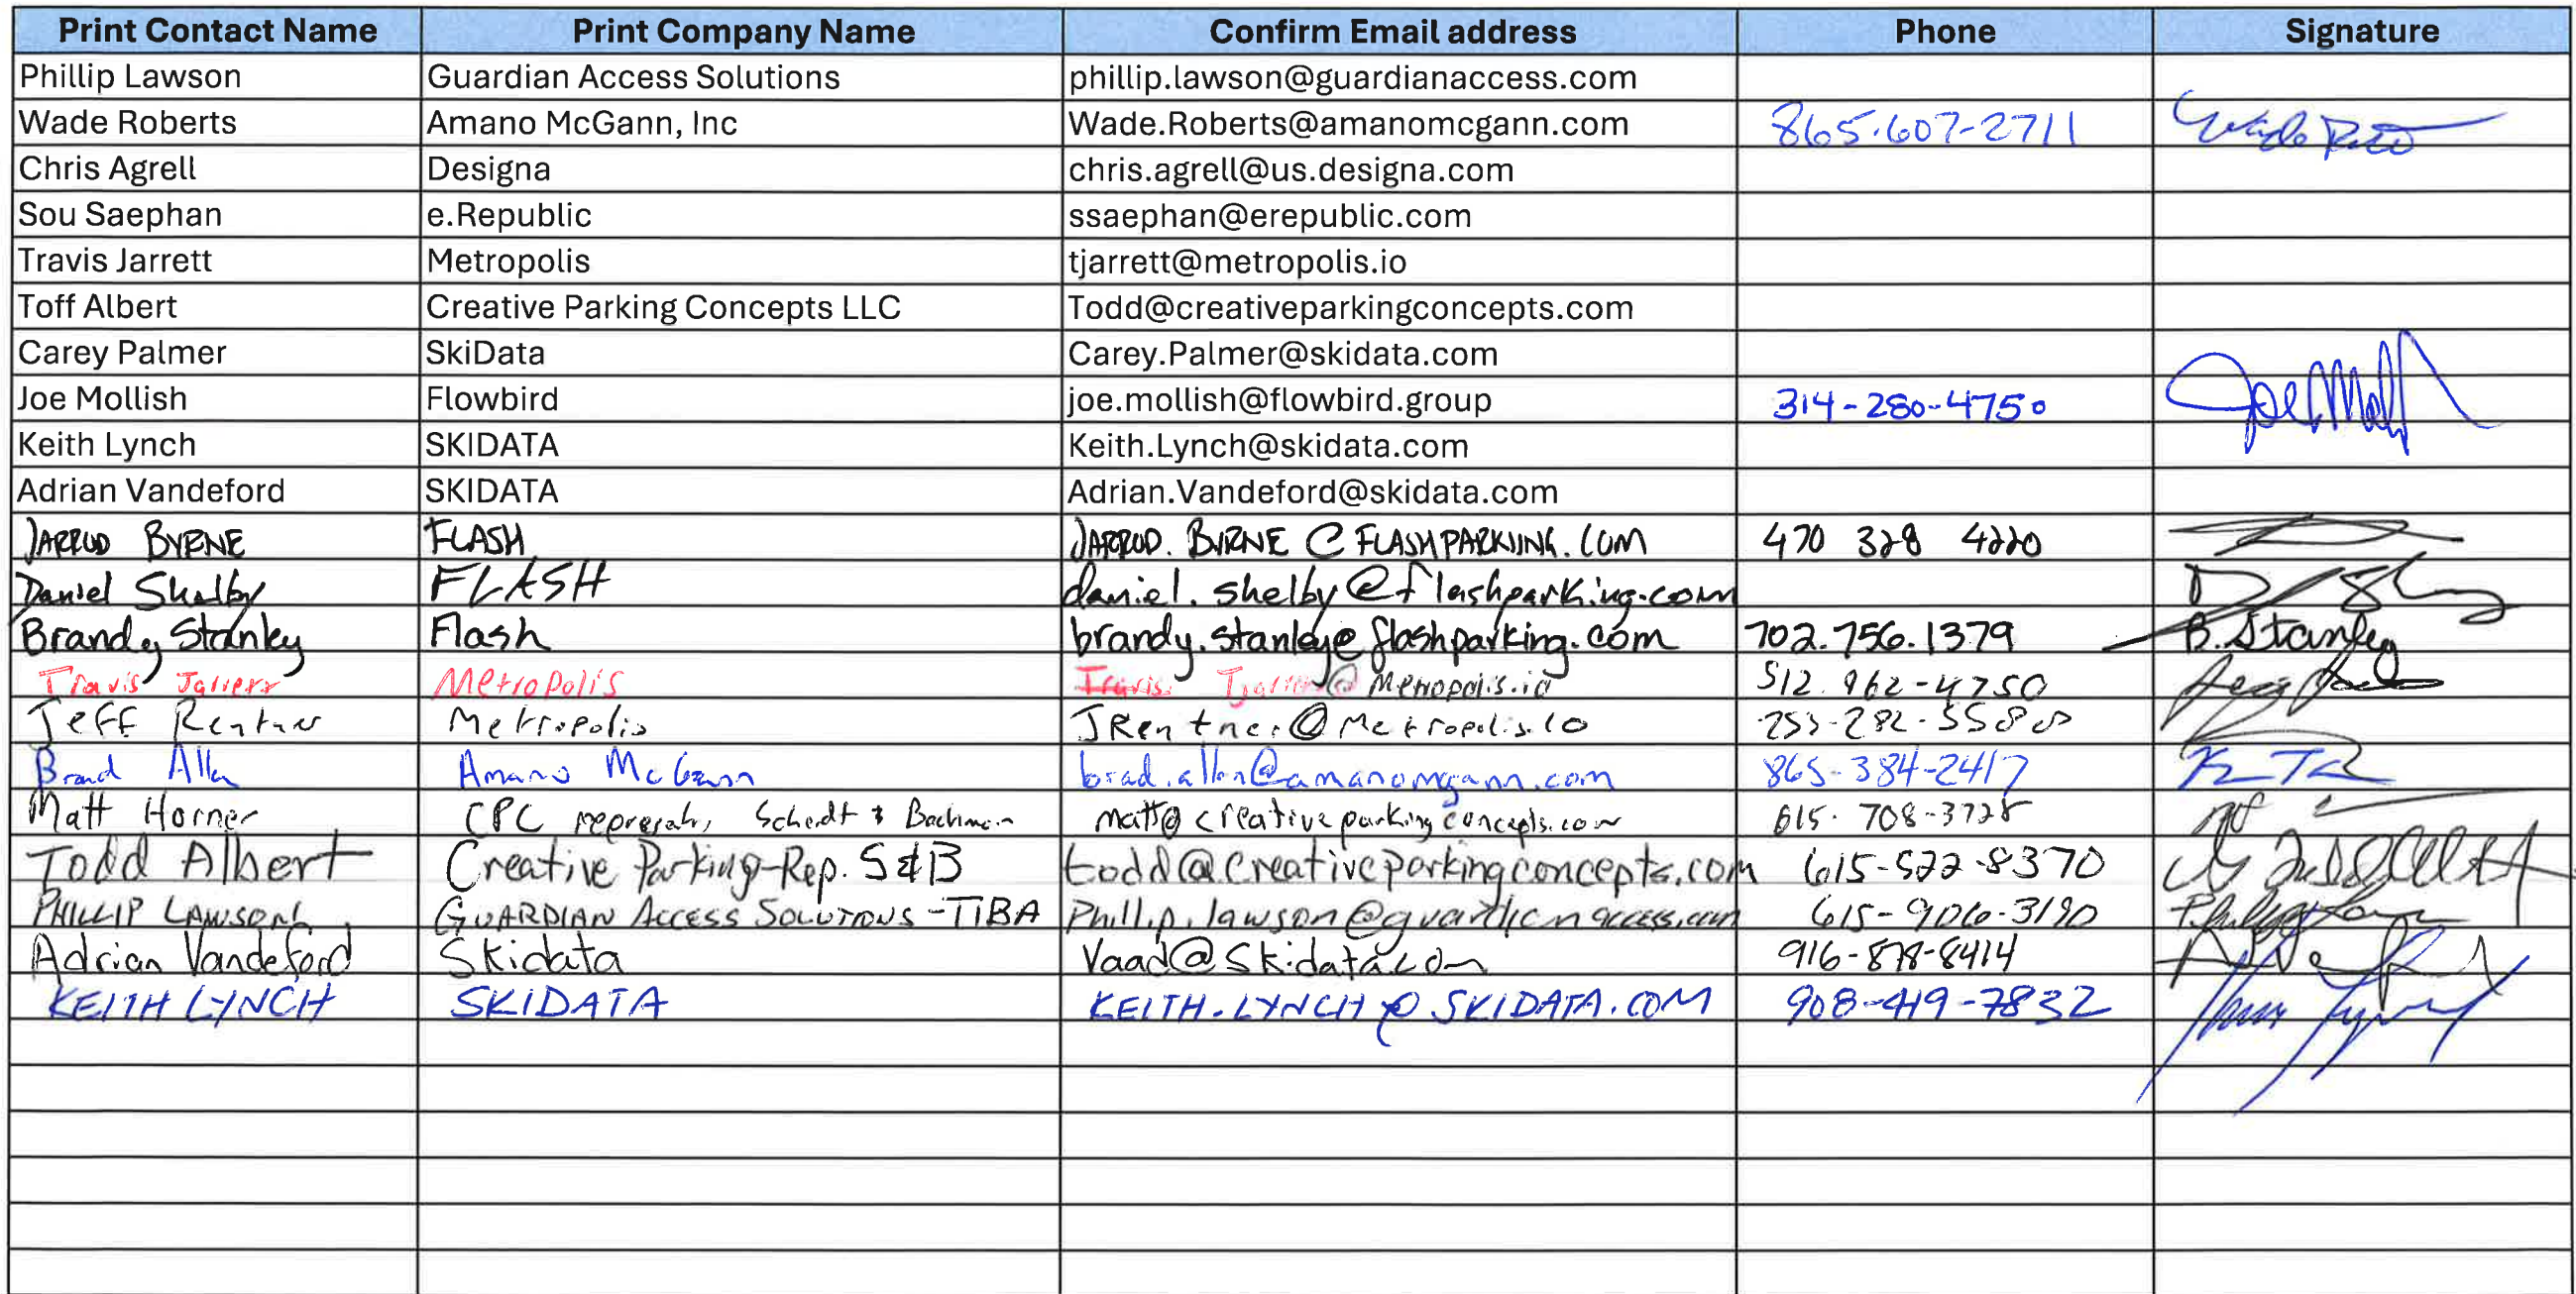 Print Contact Name Print Company Name Confirm Email address Phone Signature
Phillip Lawson Guardian Access Solutions phillip.lawson@guardianaccess.com
Wade Roberts Amano McGann, Inc Wade.Roberts@amanomcgann.com 865.607-2711
Chris Agrell Designa chris.agrell@us.designa.com
Sou Saephan e.Republic ssaephan@erepublic.com
Travis Jarrett Metropolis tjarrett@metropolis.io
Toff Albert Creative Parking Concepts LLC Todd@creativeparkingconcepts.com
Carey Palmer SkiData Carey.Palmer@skidata.com
Joe Mollish Flowbird joe.mollish@flowbird.group 314-280-4750
Keith Lynch SKIDATA Keith.Lynch@skidata.com
Adrian Vandeford SKIDATA Adrian.Vandeford@skidata.com
JARROD BYRNE FLASH JARROD.BYRNE@FLASHPARKING.COM 470 328 4220
Daniel Shelby FLASH daniel.shelby@flashparking.com
Brandy Stanley Flash brandy.stanley@flashparking.com 702.756.1379 B. Stanley
Travis Jarrett Metropolis @Metropolis.io 512.962-4750
Jeff Rentner Metropolis JRentner@Metropolis.io
Brad Allen Amano McGann brad.allen@amanomcgann.com 865-384-2417
Matt Horner CPC Scheidt & Bachmann matt@creativeparkingconcepts.com 615.708-3728
Todd Albert Creative Parking-Rep. S&B todd@creativeparkingconcepts.com 615-522-8370
PHILLIP LAWSON GUARDIAN ACCESS SOLUTIONS-TIBA Phillip.lawson@guardianaccess.com 615-906-3190
Adrian Vandeford Skidata Vaad@Skidata.com 916-878-8414
KEITH LYNCH SKIDATA KEITH.LYNCH@SKIDATA.COM 908-419-7832